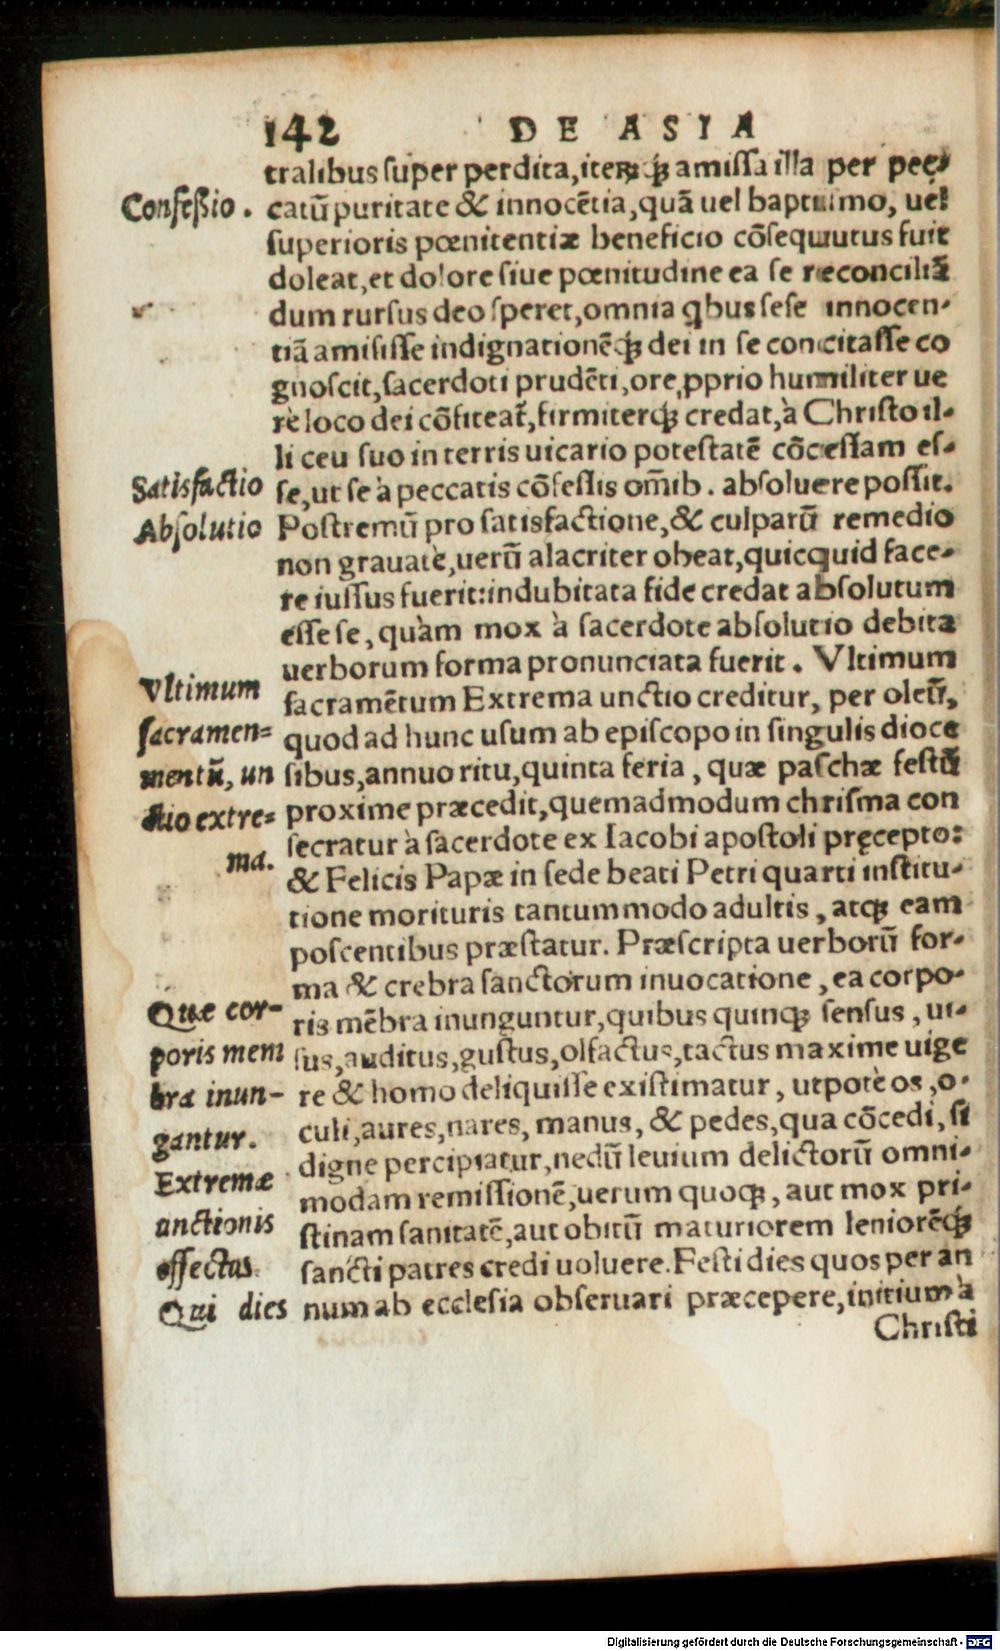 142 DE ASIA
tralibus super perdita, iteꝝ qꝫ amissa illa per pec-
Confeßio. catū puritate & innocētia, quā uel baptismo, uel
superioris pœnitentiæ beneficio cōsequutus fuit
doleat, et dolore siue pœnitudine ea se reconciliā
dum rursus deo speret, omnia ꝗbus sese innocen-
tiā amisisse indignationēqꝫ dei in se concitasse co
gnoscit, sacerdoti prudēti, ore ꝓprio humiliter ue
rè loco dei cōfiteat̃, firmiterqꝫ credat, à Christo il-
li ceu suo in terris uicario potestatē cōcessam es-
Satisfactio se, ut se à peccatis cōfessis om̄ib. absoluere possit.
Absolutio Postremū pro satisfactione, & culparū remedio
non grauatè, uerū alacriter obeat, quicquid face-
re iussus fuerit: indubitata fide credat absolutum
esse se, quàm mox à sacerdote absolutio debita
uerborum forma pronunciata fuerit. Vltimum
Vltimum sacramētum Extrema unctio creditur, per oleū,
sacramen= quod ad hunc usum ab episcopo in singulis dioce
mentū, un sibus, annuo ritu, quinta feria, quæ paschæ festū
ctio extre= proxime præcedit, quemadmodum chrisma con
ma. secratur à sacerdote ex Iacobi apostoli pręcepto:
& Felicis Papæ in sede beati Petri quarti institu-
tione morituris tantummodo adultis, atqꝫ eam
poscentibus præstatur. Præscripta uerborū for-
ma & crebra sanctorum inuocatione, ea corpo-
Quæ cor- ris mēbra inunguntur, quibus quinqꝫ sensus, ui-
poris mem sus, auditus, gustus, olfactus, tactus maxime uige
bra inun- re & homo deliquisse existimatur, utpotè os, o-
gantur. culi, aures, nares, manus, & pedes, qua cōcedi, si
digne percipiatur, nedū leuium delictorū omni-
Extremæ modam remissionē, uerum quoqꝫ, aut mox pri-
unctionis stinam sanitatē, aut obitū maturiorem leniorēqꝫ
effectus sancti patres credi uoluere. Festi dies quos per an
Qui dies num ab ecclesia obseruari præcepere, initium à
Christi
Digitalisierung gefördert durch die Deutsche Forschungsgemeinschaft - DFG